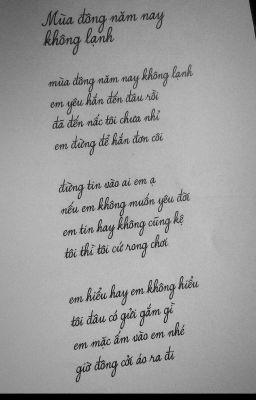 Mùa đông năm nay
không lạnh
mùa đông năm nay không lạnh
em yêu hắn đến đâu rồi
đã đến nấc tôi chưa nhỉ
em đừng để hắn đơn côi
đừng tin vào ai em ạ
nếu em không muốn yêu đời
em tin hay không cũng kệ
tôi thì tôi cứ rong chơi
em hiểu hay em không hiểu
tôi đâu có gửi gắm gì
em mặc ấm vào em nhé
giờ đông cởi áo ra đi